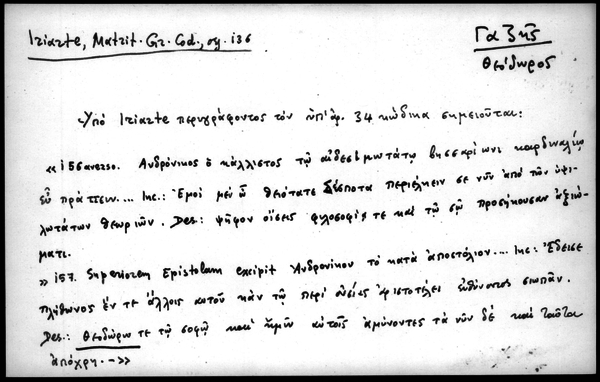 Iriarte, Matrit. Gr. Cod., σχ. 136
Γαζῆς
Θεόδωρος
Ὑπό Iriarte περιγράφοντος τόν ὑπ' ἀρ. 34 κώδικα σημειοῦται:
« 156 averso. Ἀνδρόνικος ὁ κάλλιστος τῷ αἰδεσιμωτάτῳ βησσαρίωνι καρδιναλίῳ
εὖ πράττειν... Inc.: Ἐμοί μέν ὦ θειότατε δέσποτα περιέχειν σε νῦν ἀπό τῶν ὑψι-
λωτάτων θεωριῶν. Des: ψῆφον οἴσεις φιλοσοφίᾳ τε καί τῷ σῷ προσήκουσαν ἀξιώ-
ματι.
» 157. Superiorem Epistolam excipit Ἀνδρονίκου τό κατά ἀποστόλιον... Inc: Ἔδεισε
πλήθωνος ἔν τε ἄλλοις αὐτοῦ κἀν τῷ περί οὐσίας ἀριστοτέλει εὐθύνοντος σιωπᾶν.
Des.: Θεοδώρῳ τε τῷ σοφῷ καί ἡμῖν αὐτοῖς ἀμύνοντες τά νῦν δέ καί ταῦτα
ἀπόχρη. —»